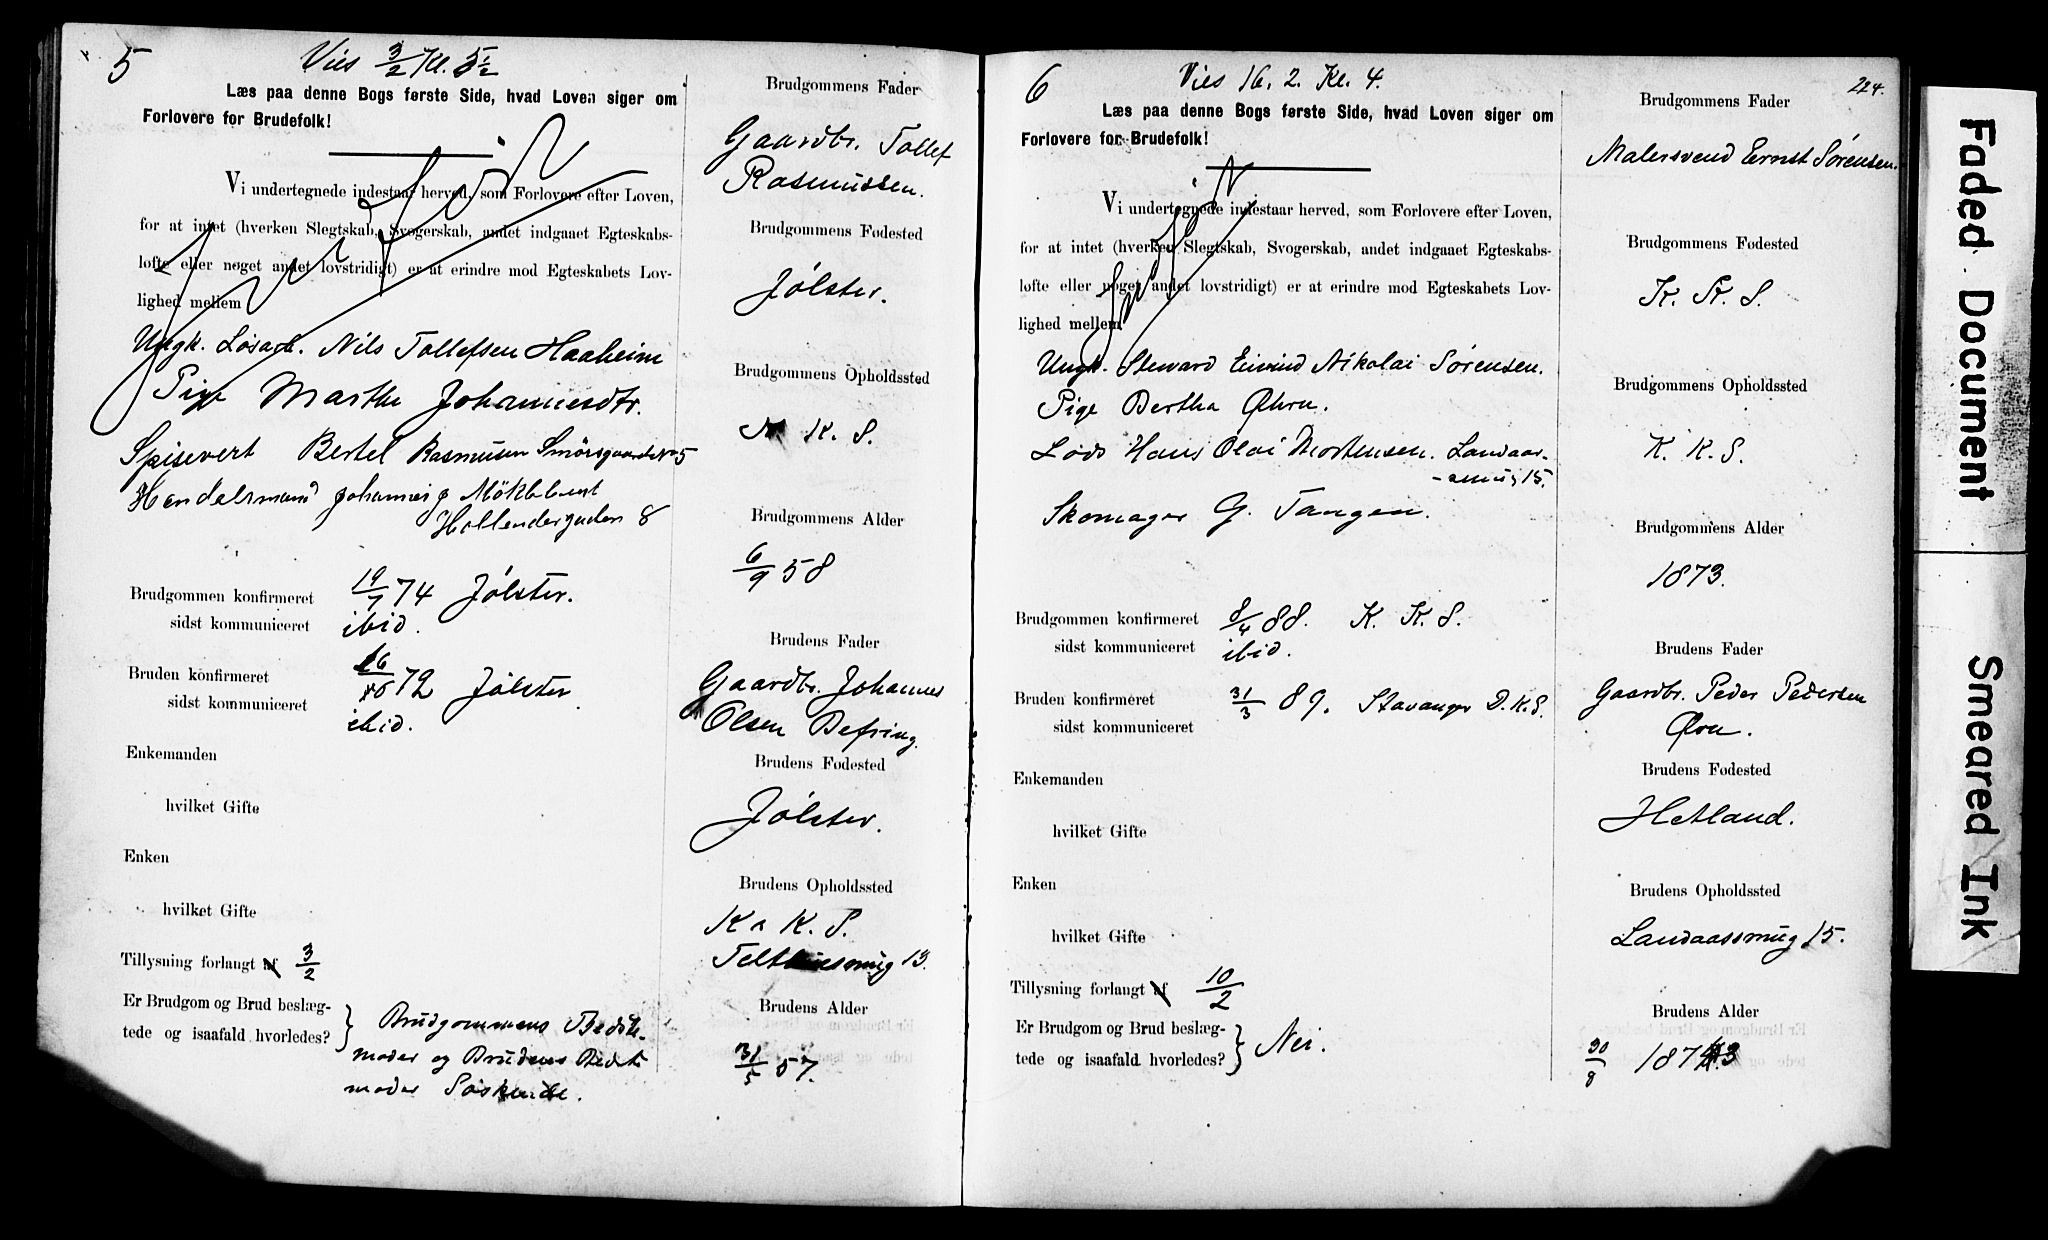 5
Vies 3/2 Kl. 5 1/2
Læs paa denne Bogs første Side, hvad Loven siger om
Forlovere for Brudefolk!
Vi undertegnede indestaar herved, som Forlovere efter Loven,
for at intet (hverken Slegtskab, Svogerskab, andet indgaaet Egteskabs-
løfte eller noget andet lovstridigt) er at erindre mod Egteskabets Lov-
lighed mellem
Ungk. Losarb. Nils Tollefsen Haaheim
Pige Marthe Johannesdtr.
Spisevert Bertel Rasmusen Smörsgaardet No 5
Handelsmand Johannes J Möklebust
Hollendergaden 8
Brudgommen konfirmeret 19/7 74 Jølster.
sidst kommuniceret ibid.
Bruden konfirmeret 16/10 72 Jølster
sidst kommuniceret ibid.
Enkemanden
hvilket Gifte
Enken
hvilket Gifte
Tillysning forlangt af 3/2
Er Brudgom og Brud beslæg-
tede og isaafald hvorledes? } Brudgommens Bedste-
moder og Brudens Bedst
moder Søskende.
Brudgommens Fader
Gaardbr. Tollef
Rasmussen.
Brudgommens Fødested
Jølster.
Brudgommens Opholdssted
K. S.
Brudgommens Alder
6/9 58
Brudens Fader
Gaardbr. Johannes
Olsen Befring.
Brudens Fødested
Jølster.
Brudens Opholdssted
K. K. S.
Telthussmug 13.
Brudens Alder
31/5 57.
6
Vies 16. 2. Kl. 4.
224.
Læs paa denne Bogs første Side, hvad Loven siger om
Forlovere for Brudefolk!
Vi undertegnede indestaar herved, som Forlovere efter Loven,
for at intet (hverken Slegtskab, Svogerskab, andet indgaaet Egteskabs-
løfte eller noget andet lovstridigt) er at erindre mod Egteskabets Lov-
lighed mellem
Ungk. Steward Eivind Nikolai Sørensen.
Pige Bertha Øhrn.
Lods Hans Olai Mortensen. Landaas-
-smug 15.
Skomager G. Tangen.
Brudgommen konfirmeret 8/4 88. K. K. S.
sidst kommuniceret ibid.
Bruden konfirmeret 31/3 89. Stavanger D.K.S.
sidst kommuniceret
Enkemanden
hvilket Gifte
Enken
hvilket Gifte
Tillysning forlangt af 10/2
Er Brudgom og Brud beslæg-
tede og isaafald hvorledes? } Nei.
Brudgommens Fader
Malersvend Ernst Sørensen.
Brudgommens Fødested
K. K. S.
Brudgommens Opholdssted
K. K. S.
Brudgommens Alder
1873.
Brudens Fader
Gaardbr. Peder Pedersen
Øvrn.
Brudens Fødested
Hetland.
Brudens Opholdssted
Landaassmug 15.
Brudens Alder
30/8 1873
Faded Document
Smeared Ink